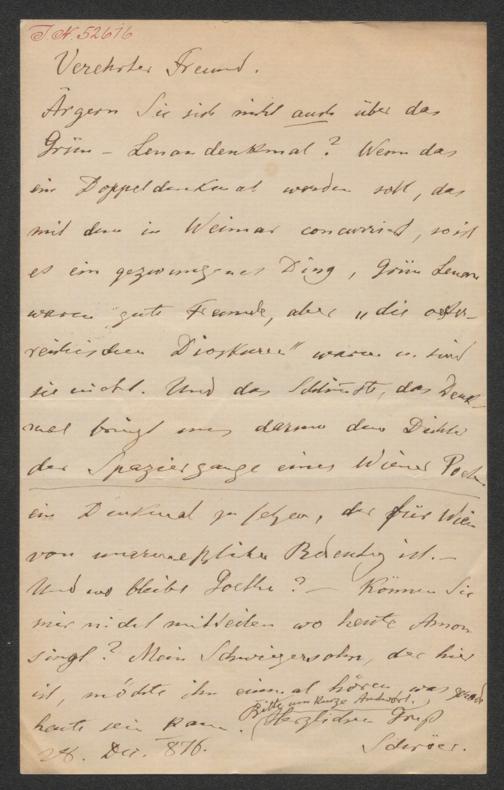 J. N. 52616
Verehrter Freund.
Ärgern Sie sich nicht auch über das
Grün-Lenaudenkmal? Wenn das
ein Doppeldenkmal werden soll, das
mit dem in Weimar concurrirt, so ist
es ein gezwungenes Ding, Grün Lenau
waren gute Freunde, aber „die oester-
reichischen Dioskuren" waren u. sind
sie nicht. Und das Schönste, das Denk-
mal bringt uns darum dem Dichter
der Spaziergänge eines Wiener Poeten
ein Denkmal zu setzen, der für Wien
von unermeßlicher Bedeutg ist. –
Und wo bleibt Goethe? – Können Sie
mir nicht mittheilen wo heute Amon
singt? Mein Schwiegersohn, der hier
ist, möchte ihn einmal hören was
heute sein kann. Bitte um kurze Antwort.
Herzlichen Gruß
26. Dec. 876. Schröer.